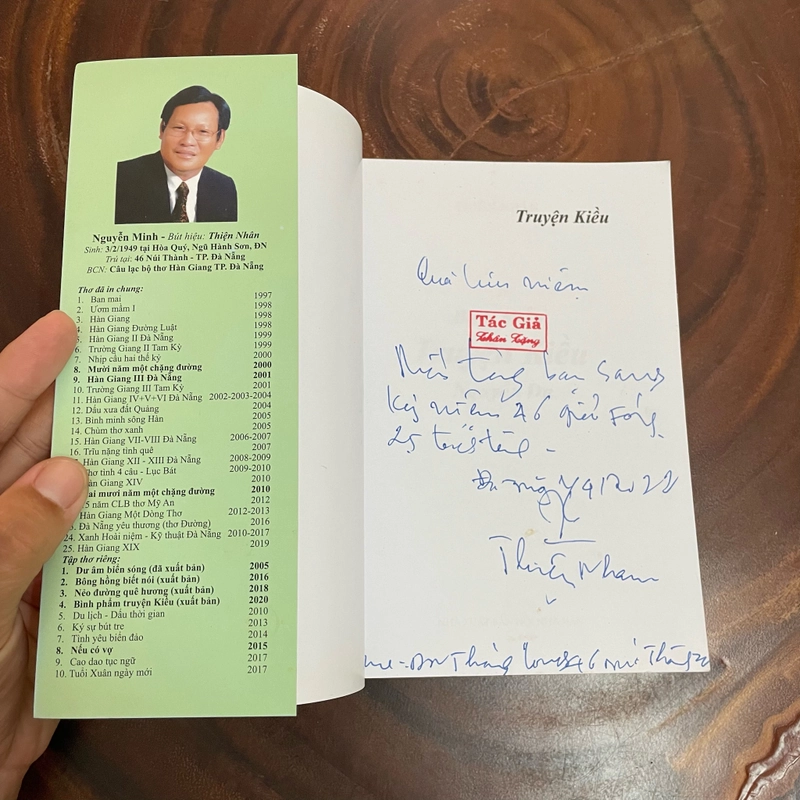 Nguyễn Minh - Bút hiệu: Thiện Nhân
Sinh: 3/2/1949 tại Hòa Quý, Ngũ Hành Sơn, ĐN
Trú tại: 46 Núi Thành - TP. Đà Nẵng
BCN: Câu lạc bộ thơ Hàn Giang TP. Đà Nẵng
Thơ đã in chung:
1. Ban mai 1997
2. Ươm mầm I 1998
3. Hàn Giang 1998
4. Hàn Giang Đường Luật 1998
5. Hàn Giang II Đà Nẵng 1999
6. Trường Giang II Tam Kỳ 1999
7. Nhịp cầu hai thế kỷ 2000
8. Mười năm một chặng đường 2000
9. Hàn Giang III Đà Nẵng 2001
10. Trường Giang III Tam Kỳ 2001
11. Hàn Giang IV+V+VI Đà Nẵng 2002-2003-2004
12. Dấu xưa đất Quảng 2004
13. Bình minh sông Hàn 2005
14. Chùm thơ xanh 2005
15. Hàn Giang VII-VIII Đà Nẵng 2006-2007
16. Trĩu nặng tình quê 2007
Hàn Giang XII - XIII Đà Nẵng 2008-2009
Thơ tình 4 câu - Lục Bát 2009-2010
Hàn Giang XIV 2010
ai mươi năm một chặng đường 2010
5 năm CLB thơ Mỹ An 2012
Hàn Giang Một Dòng Thơ 2012-2013
3. Đà Nẵng yêu thương (thơ Đường) 2016
24. Xanh Hoài niệm - Kỹ thuật Đà Nẵng 2010-2017
25. Hàn Giang XIX 2019
Tập thơ riêng:
1. Dư âm biển sóng (đã xuất bản) 2005
2. Bông hồng biết nói (xuất bản) 2016
3. Nẻo đường quê hương (xuất bản) 2018
4. Bình phẩm truyện Kiều (xuất bản) 2020
5. Du lịch - Dấu thời gian 2010
6. Ký sự bút tre 2013
7. Tình yêu biển đảo 2014
8. Nếu có vợ 2015
9. Cao dao tục ngữ 2017
10. Tuổi Xuân ngày mới 2017
Truyện Kiều
Quà lưu niệm
Tác Giả
Thân Tặng
tặng bạn Sang
Kỷ niệm 46
25
Thiện Nhân
Thăng Long 46 Núi Thành